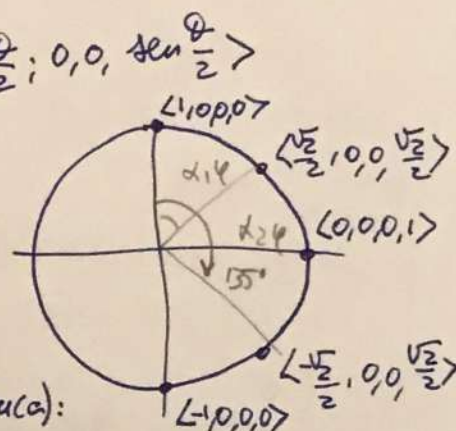 θ/2 ; 0,0, sen θ/2 >
<1,0,0,0>
<√2/2, 0,0, √2/2>
α1φ
<0,0,0,1>
α2φ
135°
<-√2/2, 0,0, √2/2>
<-1,0,0,0>